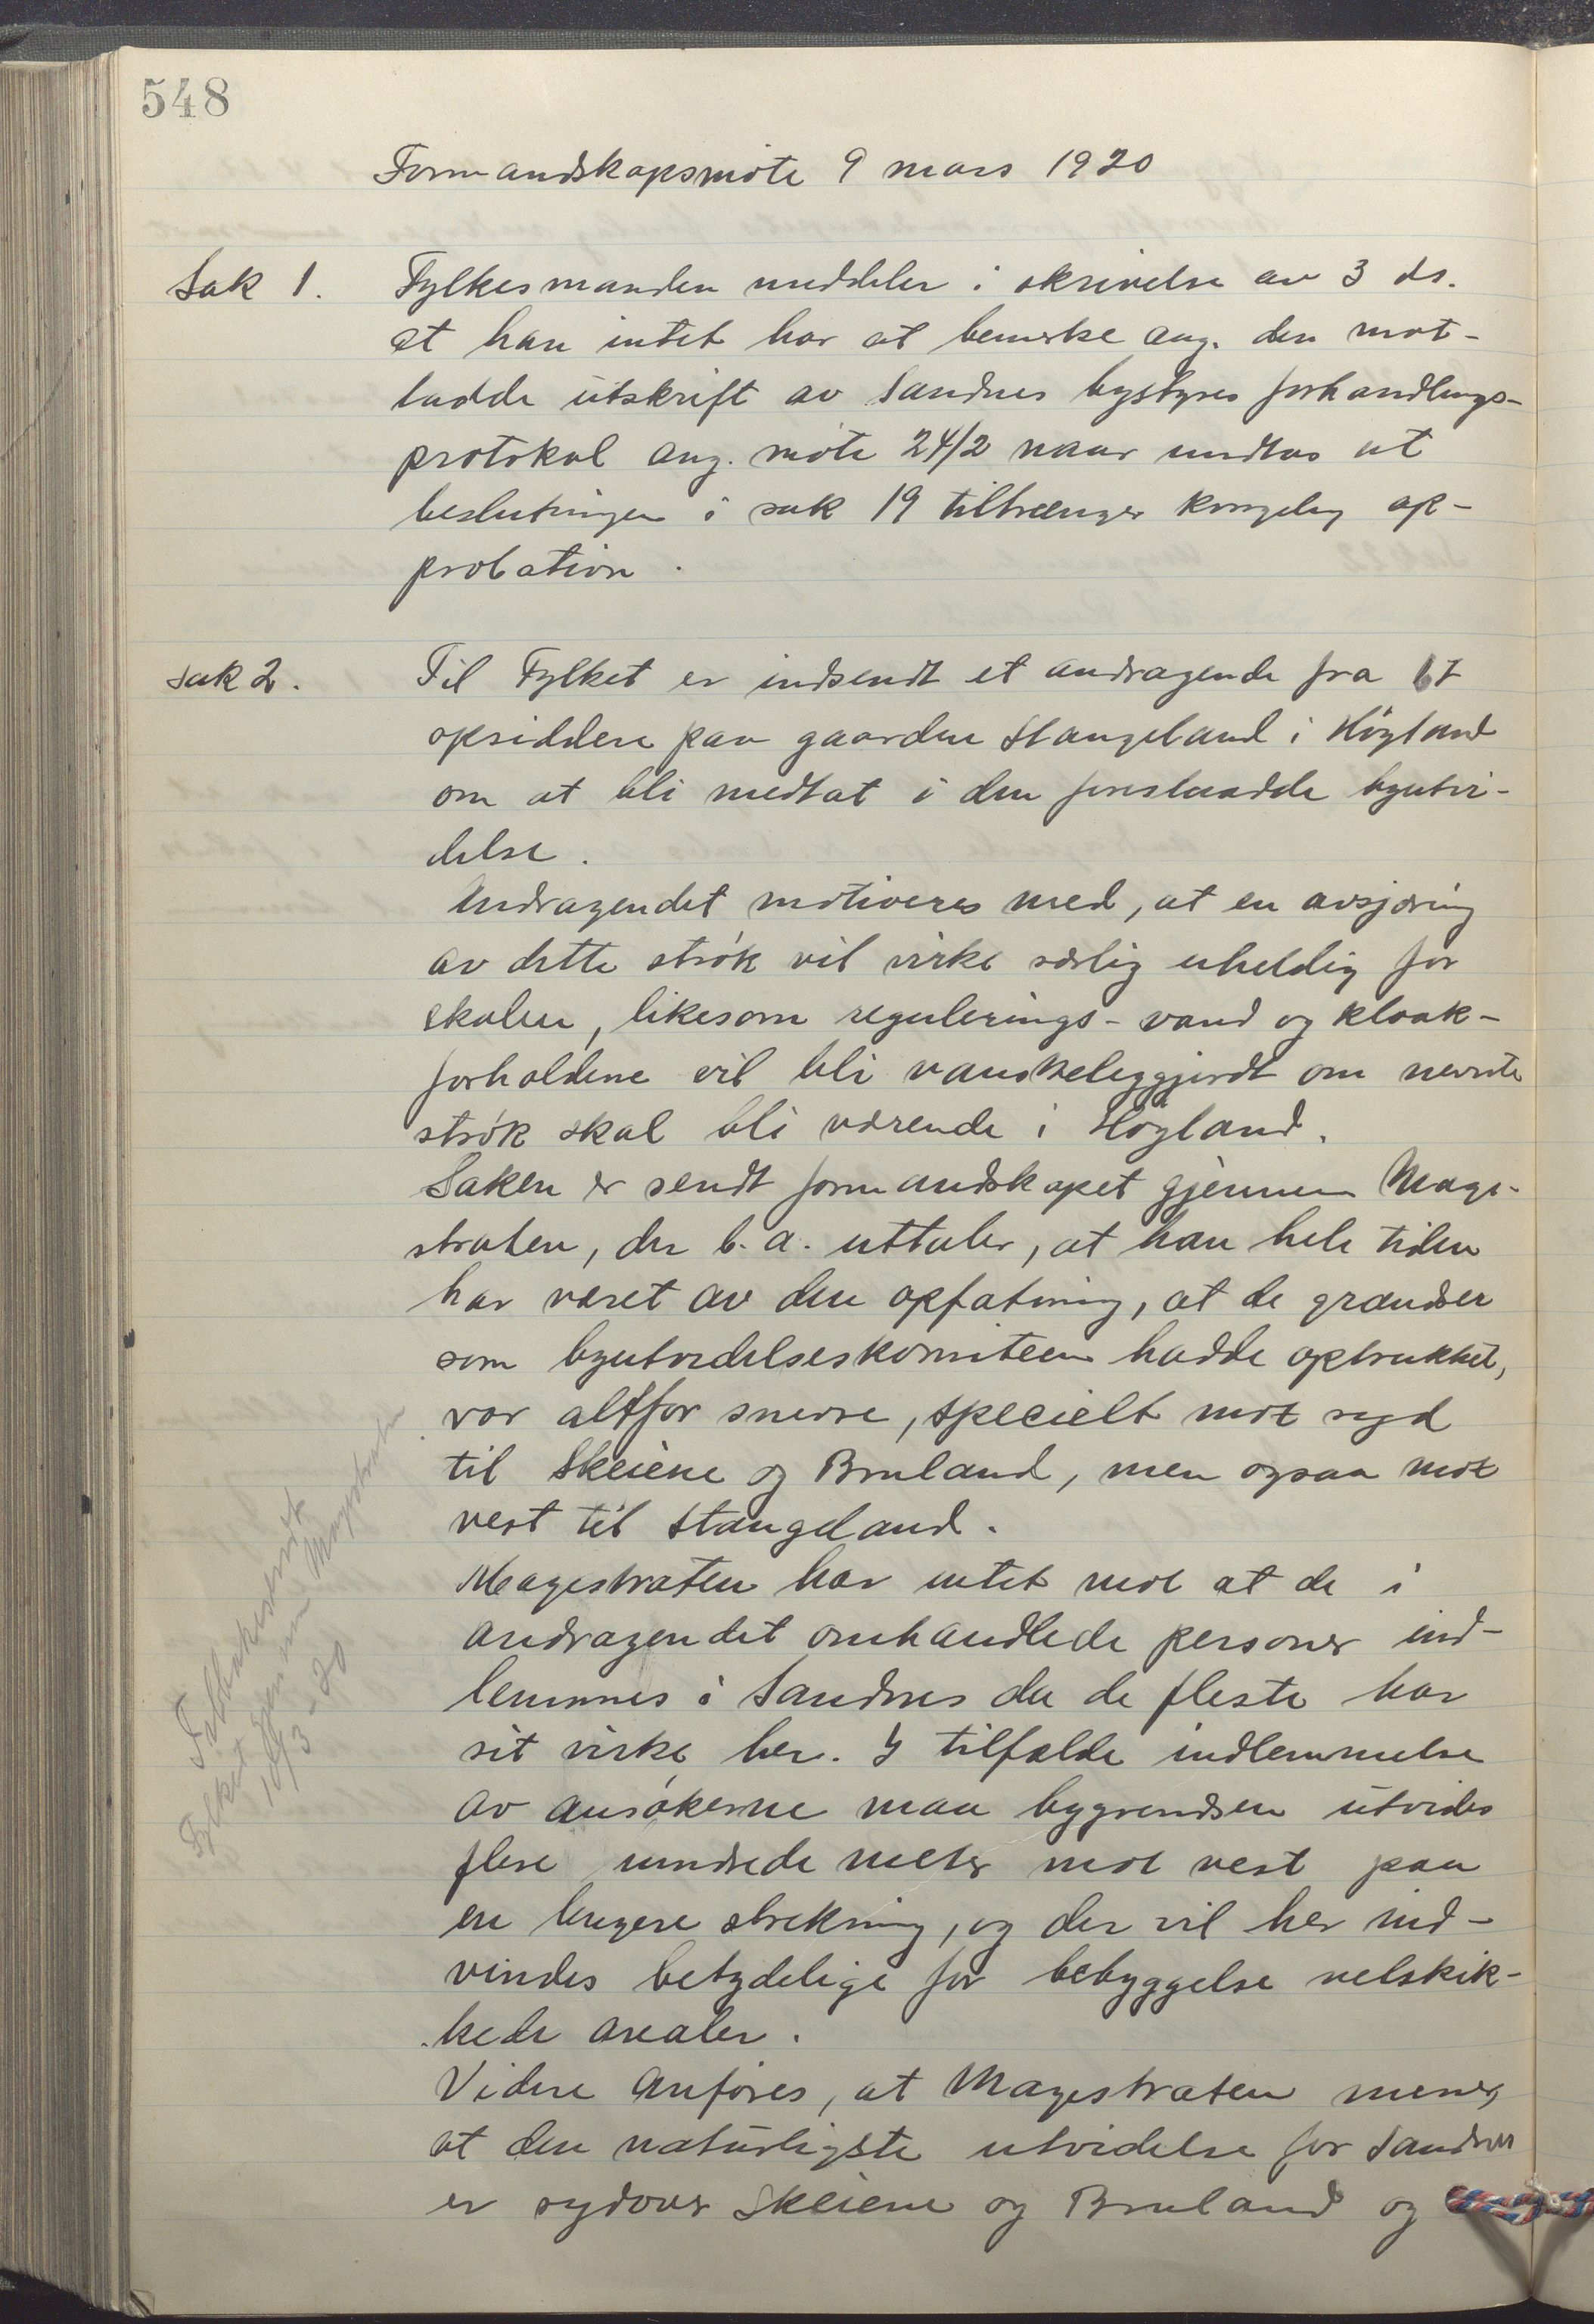 548
Formandskapsmöte 9 mars 1920
Sak 1. Fylkesmanden meddeler i skrivelse av 3 ds.
at han intet har at bemerke ang. den mot-
tadde utskrift av Sandnes bystyres forhandlings-
protokol ang. möte 24/2 naar undtas at
beslutningen i sak 19 tiltrænger kongelig ap-
probation.
Sak 2. Til Fylket er indsendt et andragende fra 67
opsiddere paa gaarden Stangeland i Höyland
om at bli medtat i den foreslaadde byutvi-
delse.
Andragendet motiveres med, at en avsjæring
av dette strök vil virke særlig uheldig for
skolen, likesom regulerings- vand og kloak-
forholdene vil bli vanskeliggjordt om nevnte
strök skal bli værende i Höyland.
Saken er sendt formandskapet gjennem Magi-
straten, der b.a. uttaler, at han hele tiden
har været av den opfatning, at de grændser
som byutvidelseskomiteen hadde optrukket,
var altfor snevre, specielt mot syd
til Skeiene og Bruland, men ogsaa mot
vest til Stangeland.
Magistraten har intet mot at de i
andragendet omhandlede personer ind-
lemmes i Sandnes da de fleste har
sit virke her. I tilfælde indlemmelse
av ansökerne maa bygrendsen utvides
flere hundrede meter mot vest paa
en lengere strekning, og der vil her ind-
vindes betydelige for bebyggelse velskik-
kede arealer.
Videre anföres, at Magistraten mener,
at den naturligste utvidelse for Sandnes
er sydover Skeiene og Bruland og
Tilbakesendt
Fylket gjennem Magistraten
10/3-20